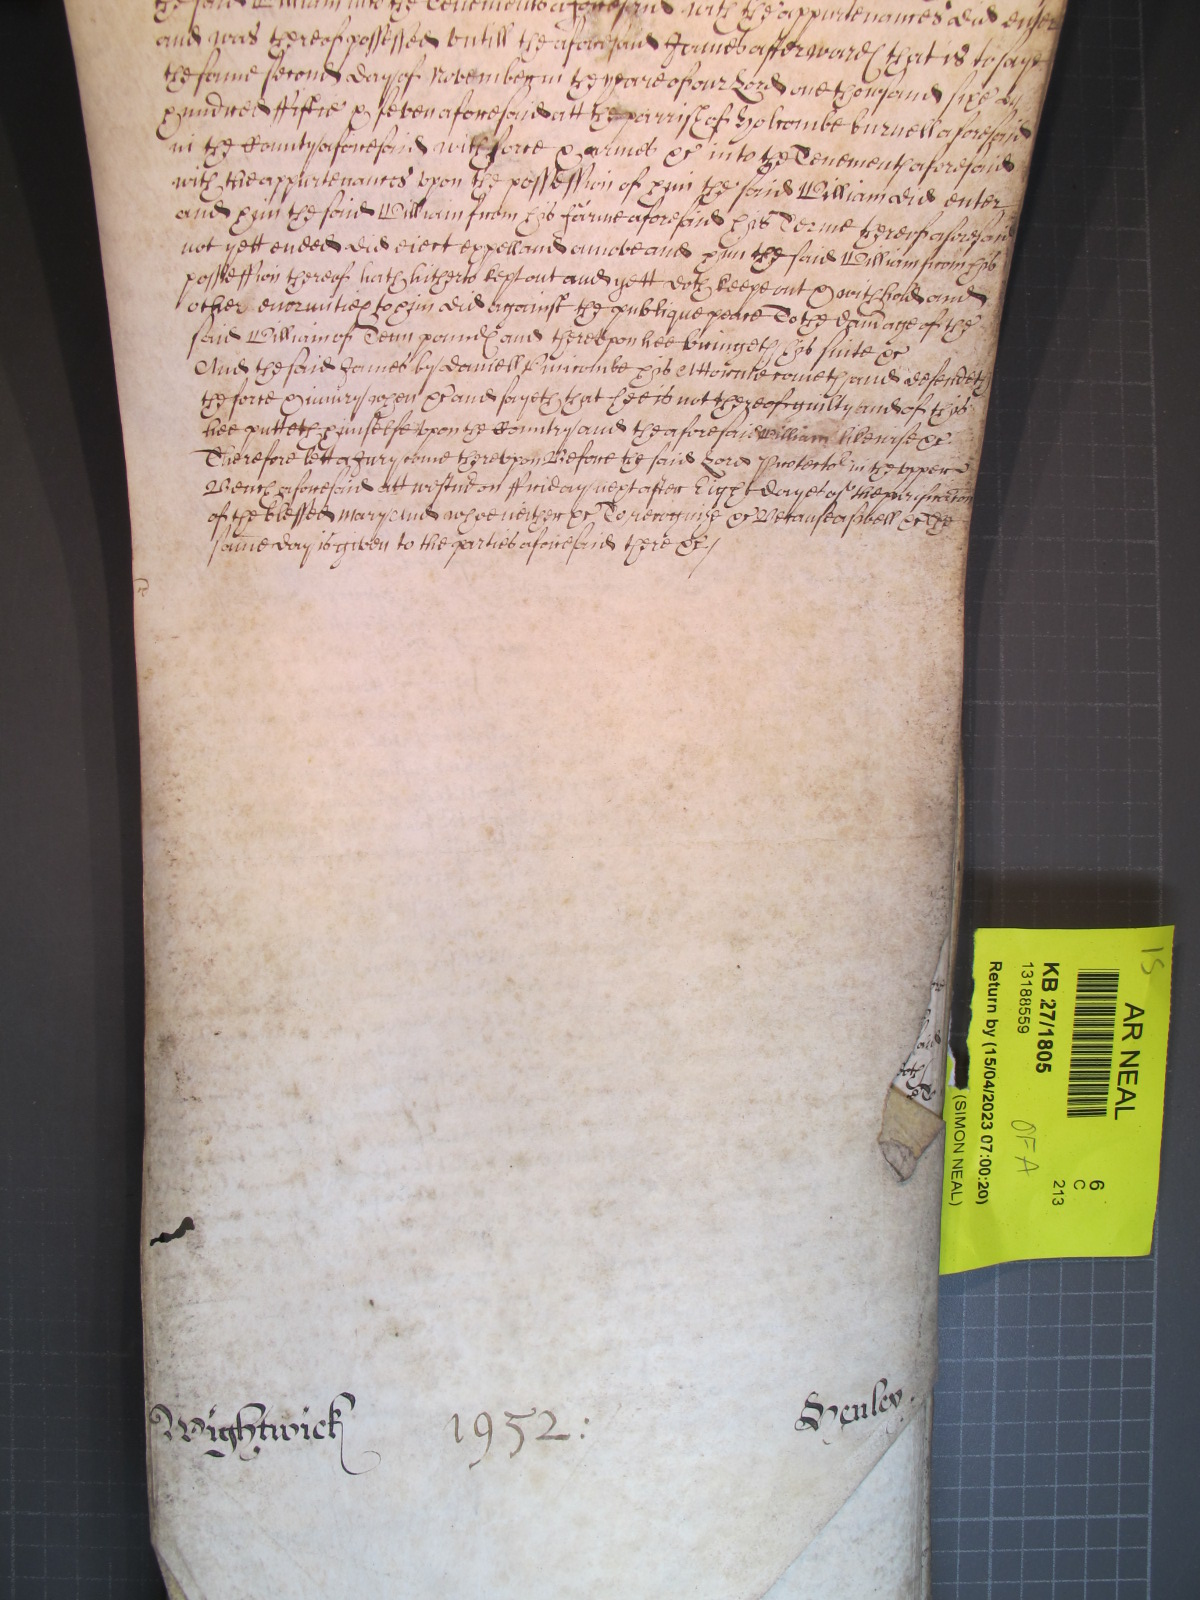 the said William into the Tenements aforesaid with the appurtenances did enter
and was thereof possessed untill the aforesaid James afterward that is to saye
the same second day of November in the yeare of our Lord one thousand sixe
hundred fiftie & seven aforesaid att the parrish of Holcombe burnell aforesaid
in the County aforesaid with force & armes &c into the Tenements aforesaid
with the appurtenances upon the possession of him the said William did enter
and him the said William from his farme aforesaid his Terme thereof aforesaid
not yett ended did eiect expell and amove and him the said William from his
possession thereof hath hitherto kept out and yett doth keepe out & withhold and
other enormities to him did against the publique peace To the damage of the
said William of Tenn pounds and thereupon hee bringeth his suite &c
And the said James by Daniell his Attorney cometh and defendeth
the force & iniury when &c and sayeth that hee is not thereof guilty and of this
hee putteth himselfe upon the Country and the aforesaid William likewise &c
Therefore lett a Jury come thereupon Before the said Lord Protector in the upper
Bench aforesaid att westm on Friday next after Eight dayes of the purification
of the blessed Mary And who neither &c To recognise &c Because aswell &c The
same day is given to the parties aforesaid there &c /
Wightwick 1952: Henley.
15
AR NEAL
KB 27/1805
13188559
Return by (15/04/2023 07:00:20)
(SIMON NEAL)
OFA
6
C
213